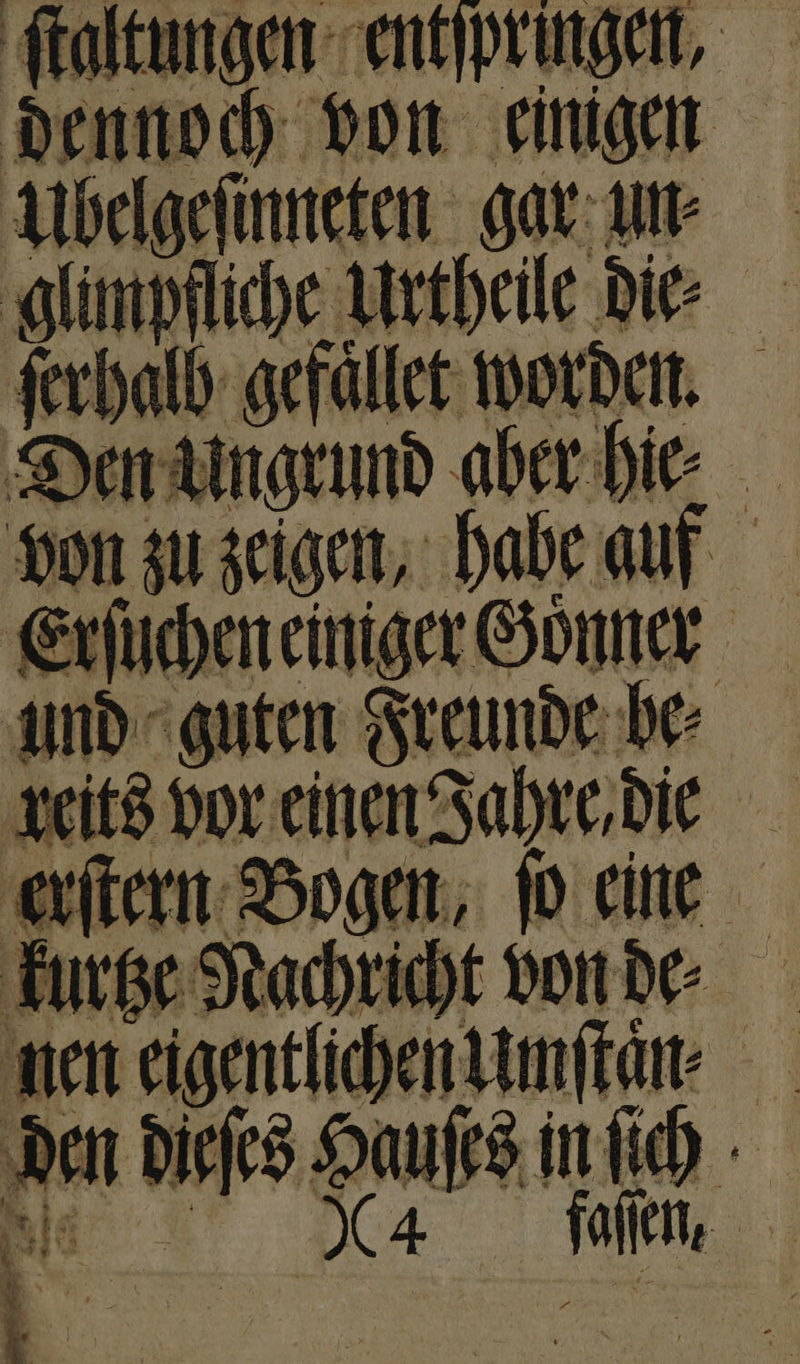 ſtaltungen entſpringen,
dennoch von einigen
Ubelgeſinneten gar un⸗
glimpfliche Urtheile die⸗
ſerhalb gefaͤllet worden.
Den Ungrund aber hie⸗
von zu zeigen, habe auf
Erſuchen einiger Goͤnner
und guten Freunde be⸗
reits vor einen Jahre, die
erſtern Bogen, ſo eine
kurtze Nachricht von de⸗
nen eigentlichen Umſtaͤn⸗
den dieſes Hauſes in ſich
)( 4 faſſen,